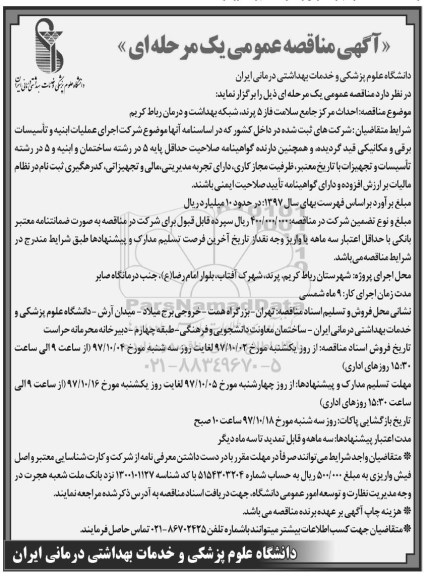 «آگهی مناقصه عمومی یک مرحله‌ای»
دانشگاه علوم پزشکی و خدمات بهداشتی درمانی ایران
در نظر دارد مناقصه عمومی یک مرحله‌ای ذیل را برگزار نماید:
موضوع مناقصه: احداث مرکز جامع سلامت فاز ۵ پرند، شبکه بهداشت و درمان رباط کریم
شرایط متقاضیان: شرکت های ثبت شده در داخل کشور که در اساسنامه آنها موضوع شرکت اجرای عملیات ابنیه و تأسیسات
برقی و مکانیکی قید گردیده، و همچنین دارنده گواهینامه صلاحیت حداقل پایه ۵ در رشته ساختمان و ابنیه و ۵ در رشته
تأسیسات و تجهیزات با تاریخ معتبر، ظرفیت مجاز کاری، دارای تجربه مدیریتی، مالی و تجهیزاتی، کد رهگیری ثبت نام در نظام
مالیات بر ارزش افزوده و دارای گواهینامه تأیید صلاحیت ایمنی باشند.
مبلغ برآورد بر اساس فهرست بهای سال ۱۳۹۷: در حدود ۱۰ میلیارد ریال
مبلغ و نوع تضمین شرکت در مناقصه: ۴۰۰/۰۰۰/۰۰۰ ریال سپرده قابل قبول برای شرکت در مناقصه به صورت ضمانتنامه معتبر
بانکی با حداقل اعتبار سه ماهه یا واریز وجه نقد از تاریخ آخرین فرصت تسلیم مدارک و پیشنهادها طبق شرایط مندرج در
شرایط مناقصه می‌باشد.
محل اجرای پروژه: شهرستان رباط کریم، پرند، شهرک آفتاب، بلوار امام رضا(ع)، جنب درمانگاه صابر
مدت زمان اجرای کار: ۹ ماه شمسی
نشانی محل فروش و تسلیم اسناد مناقصه: تهران - بزرگراه همت - خروجی برج میلاد - میدان آرش - دانشگاه علوم پزشکی و
خدمات بهداشتی درمانی ایران - ساختمان معاونت دانشجویی و فرهنگی - طبقه چهارم - دبیرخانه محرمانه حراست
تاریخ فروش اسناد مناقصه: از روز یکشنبه مورخ ۹۷/۱۰/۰۲ لغایت روز سه شنبه مورخ ۹۷/۱۰/۰۴ (از ساعت ۹ الی ساعت
۱۵:۳۰ روزهای اداری)
مهلت تسلیم مدارک و پیشنهادها: از روز چهارشنبه مورخ ۹۷/۱۰/۰۵ لغایت روز یکشنبه مورخ ۹۷/۱۰/۱۶ (از ساعت ۹ الی
ساعت ۱۵:۳۰ روزهای اداری)
تاریخ بازگشایی پاکات: روز سه شنبه مورخ ۹۷/۱۰/۱۸ ساعت ۱۰ صبح
مدت اعتبار پیشنهادها: سه ماهه و قابل تمدید تا سه ماه دیگر
※ متقاضیان واجد شرایط می‌توانند صرفاً در مهلت مقرر با در دست داشتن معرفی نامه از شرکت و کارت شناسایی معتبر و اصل
فیش واریزی به مبلغ ۵۰۰/۰۰۰ ریال به حساب شماره ۵۱۵۴۳۰۳۲۰۴ با کد شناسه ۱۳۰۰۱۰۱۱۲۷ نزد بانک ملت شعبه هجرت در
وجه مدیریت نظارت و توسعه امور عمومی دانشگاه، جهت دریافت اسناد مناقصه به آدرس ذکر شده مراجعه نمایند.
※ هزینه چاپ آگهی بر عهده برنده مناقصه می باشد.
※ متقاضیان جهت کسب اطلاعات بیشتر میتوانند با شماره تلفن ۸۶۷۰۲۴۲۵-۰۲۱ تماس حاصل فرمایند.
دانشگاه علوم پزشکی و خدمات بهداشتی درمانی ایران
ParsNamadData
۰۲۱-۸۸۳۴۹۶۷۰-۵